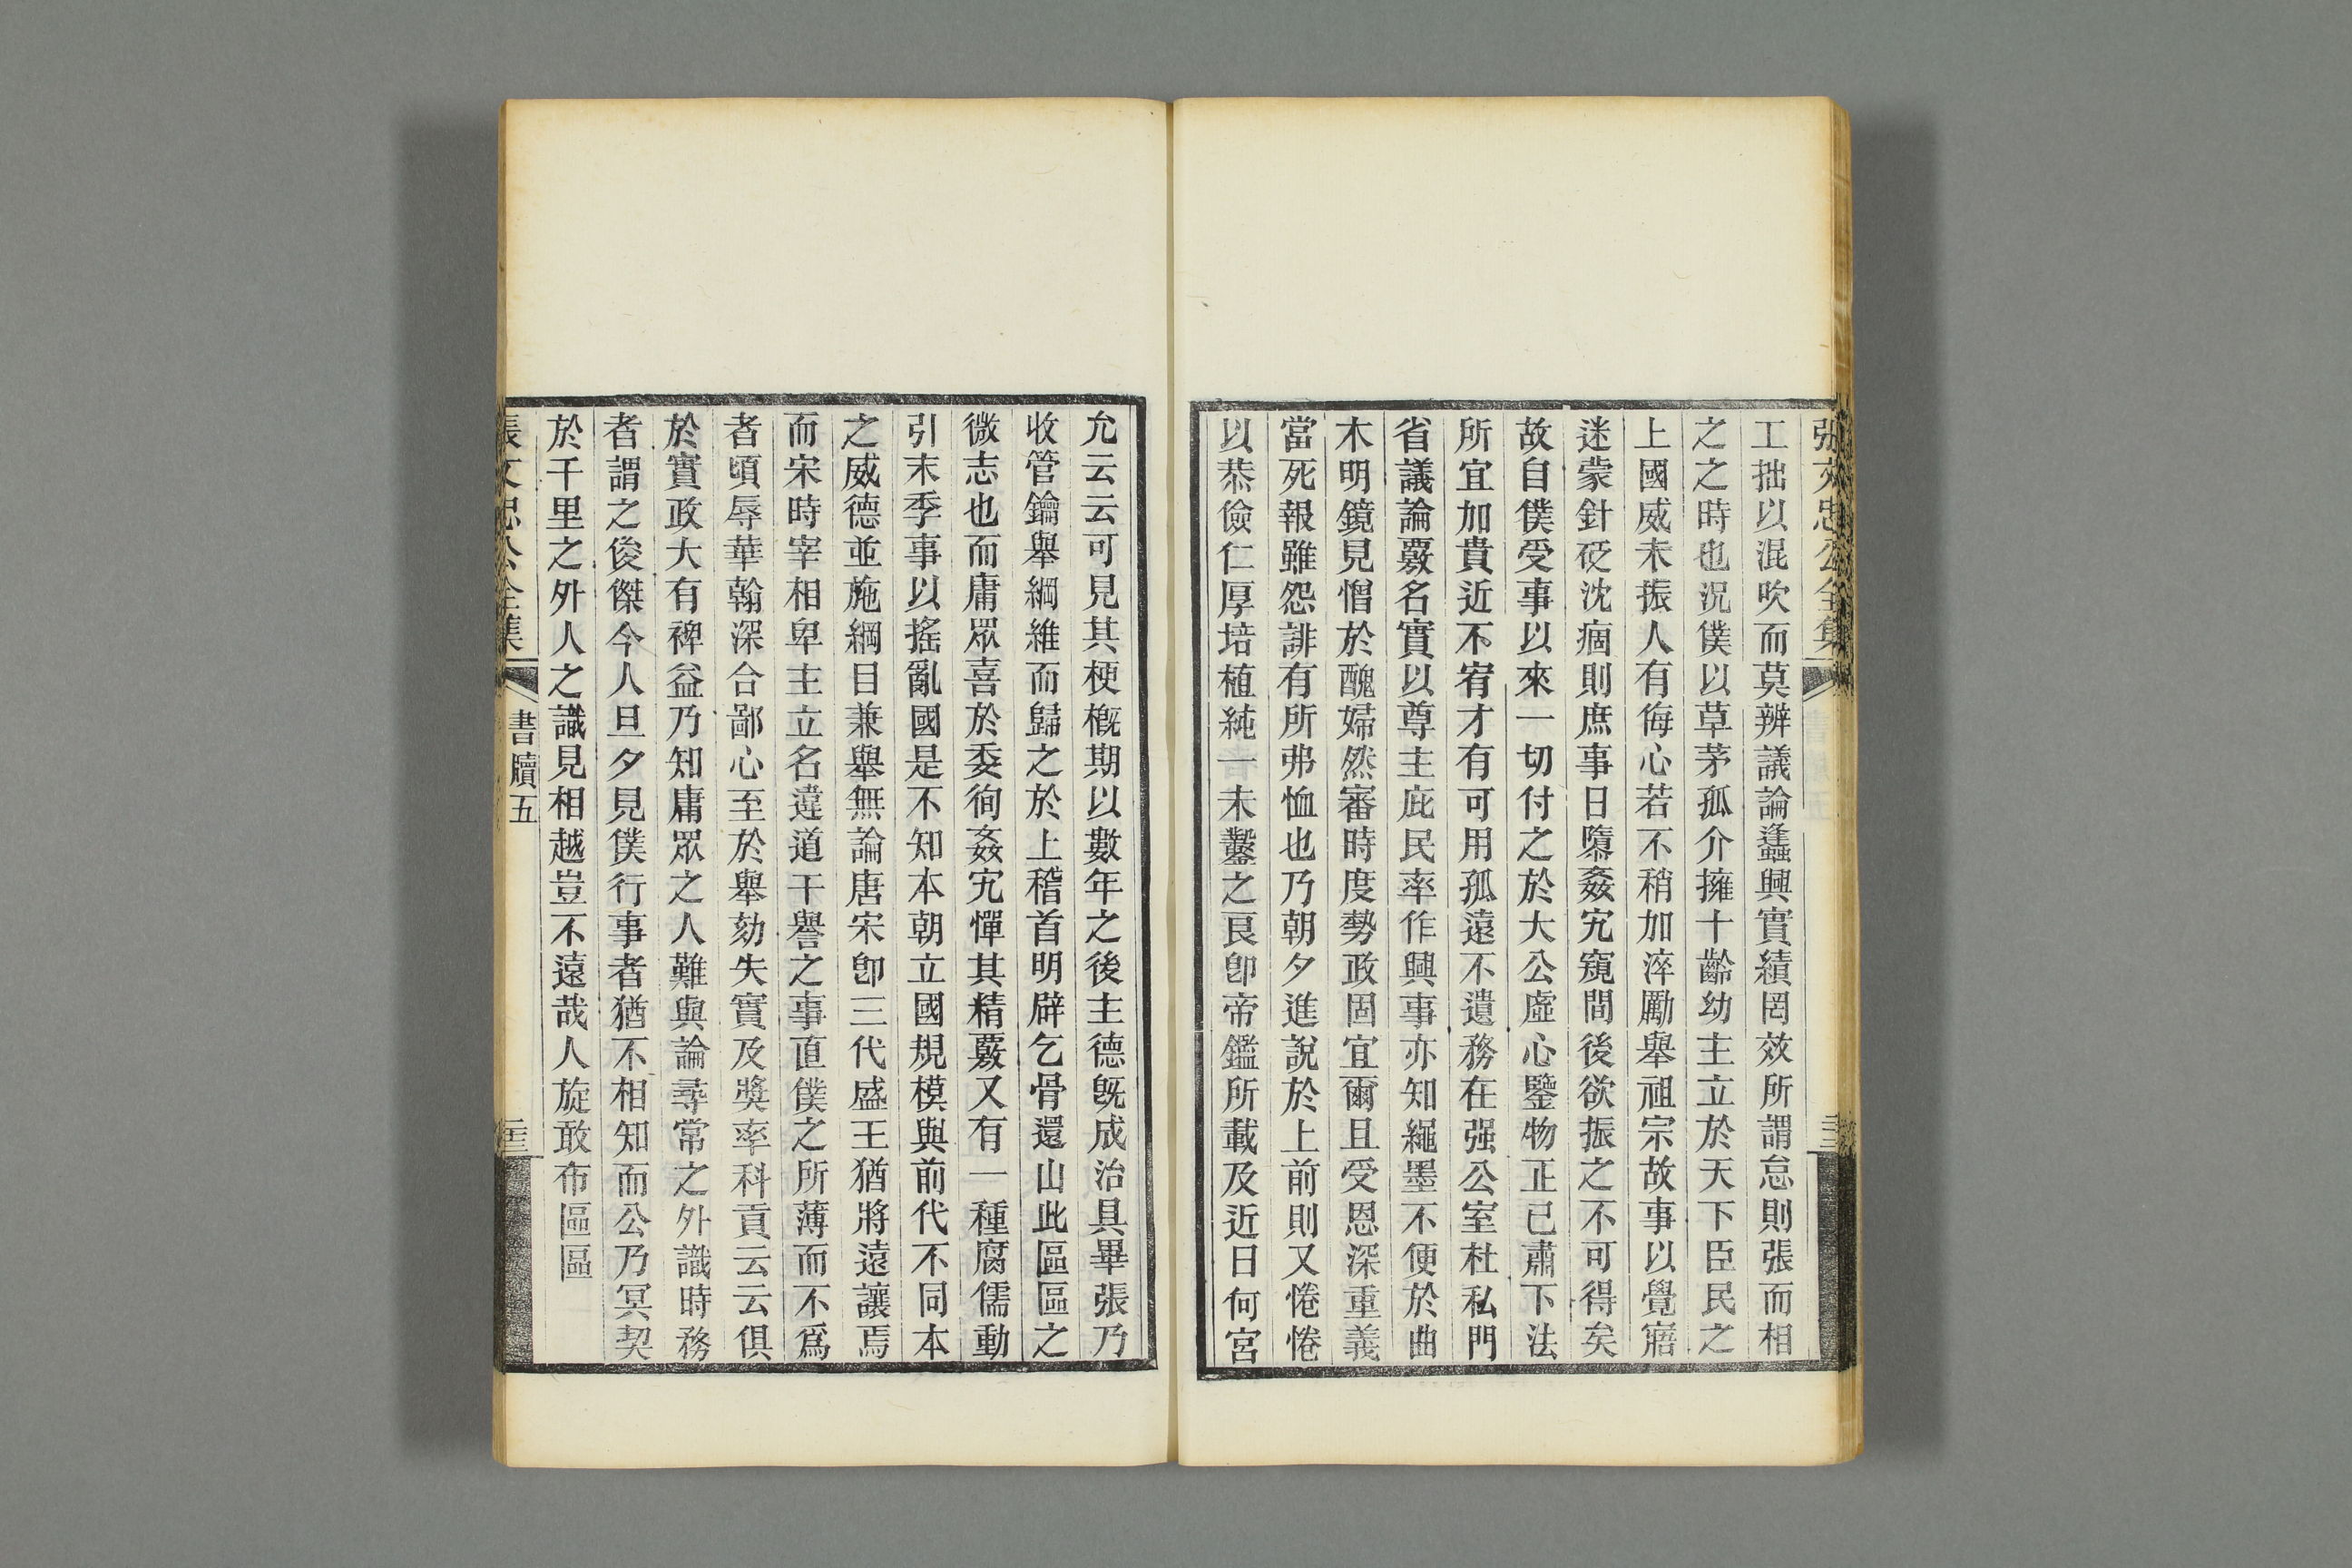 張文忠公全集
工拙以混吹而莫辨議論蠭興實績罔效所謂怠則張而相
之之時也況僕以草茅孤介擁十齡幼主立於天下臣民之
上國威未振人有侮心若不稍加淬勵舉祖宗故事以覺寤
迷蒙針砭沈痼則庶事日隳姦宄窺間後欲振之不可得矣
故自僕受事以來一切付之於大公虛心鑒物正己肅下法
所宜加貴近不宥才有可用孤遠不遺務在强公室杜私門
省議論覈名實以尊主庇民率作興事亦知繩墨不便於曲
木明鏡見憎於醜婦然審時度勢政固宜爾且受恩深重義
當死報雖怨誹有所弗恤也乃朝夕進說於上前則又惓惓
以恭儉仁厚培植純一未鑿之良卽帝鑑所載及近日何宮
允云云可見其梗槪期以數年之後主德旣成治具畢張乃
收管鑰舉綱維而歸之於上稽首明辟乞骨還山此區區之
微志也而庸眾喜於委徇姦宄憚其精覈又有一種腐儒動
引末季事以搖亂國是不知本朝立國規模與前代不同本
之威德並施綱目兼舉無論唐宋卽三代盛王猶將遠讓焉
而宋時宰相卑主立名違道干譽之事直僕之所薄而不爲
者頃辱華翰深合鄙心至於舉劾失實及獎率科貢云云俱
於實政大有裨益乃知庸眾之人難與論尋常之外識時務
者謂之俊傑今人旦夕見僕行事者猶不相知而公乃冥契
於千里之外人之識見相越豈不遠哉人旋敢布區區
張文忠公全集 書牘五